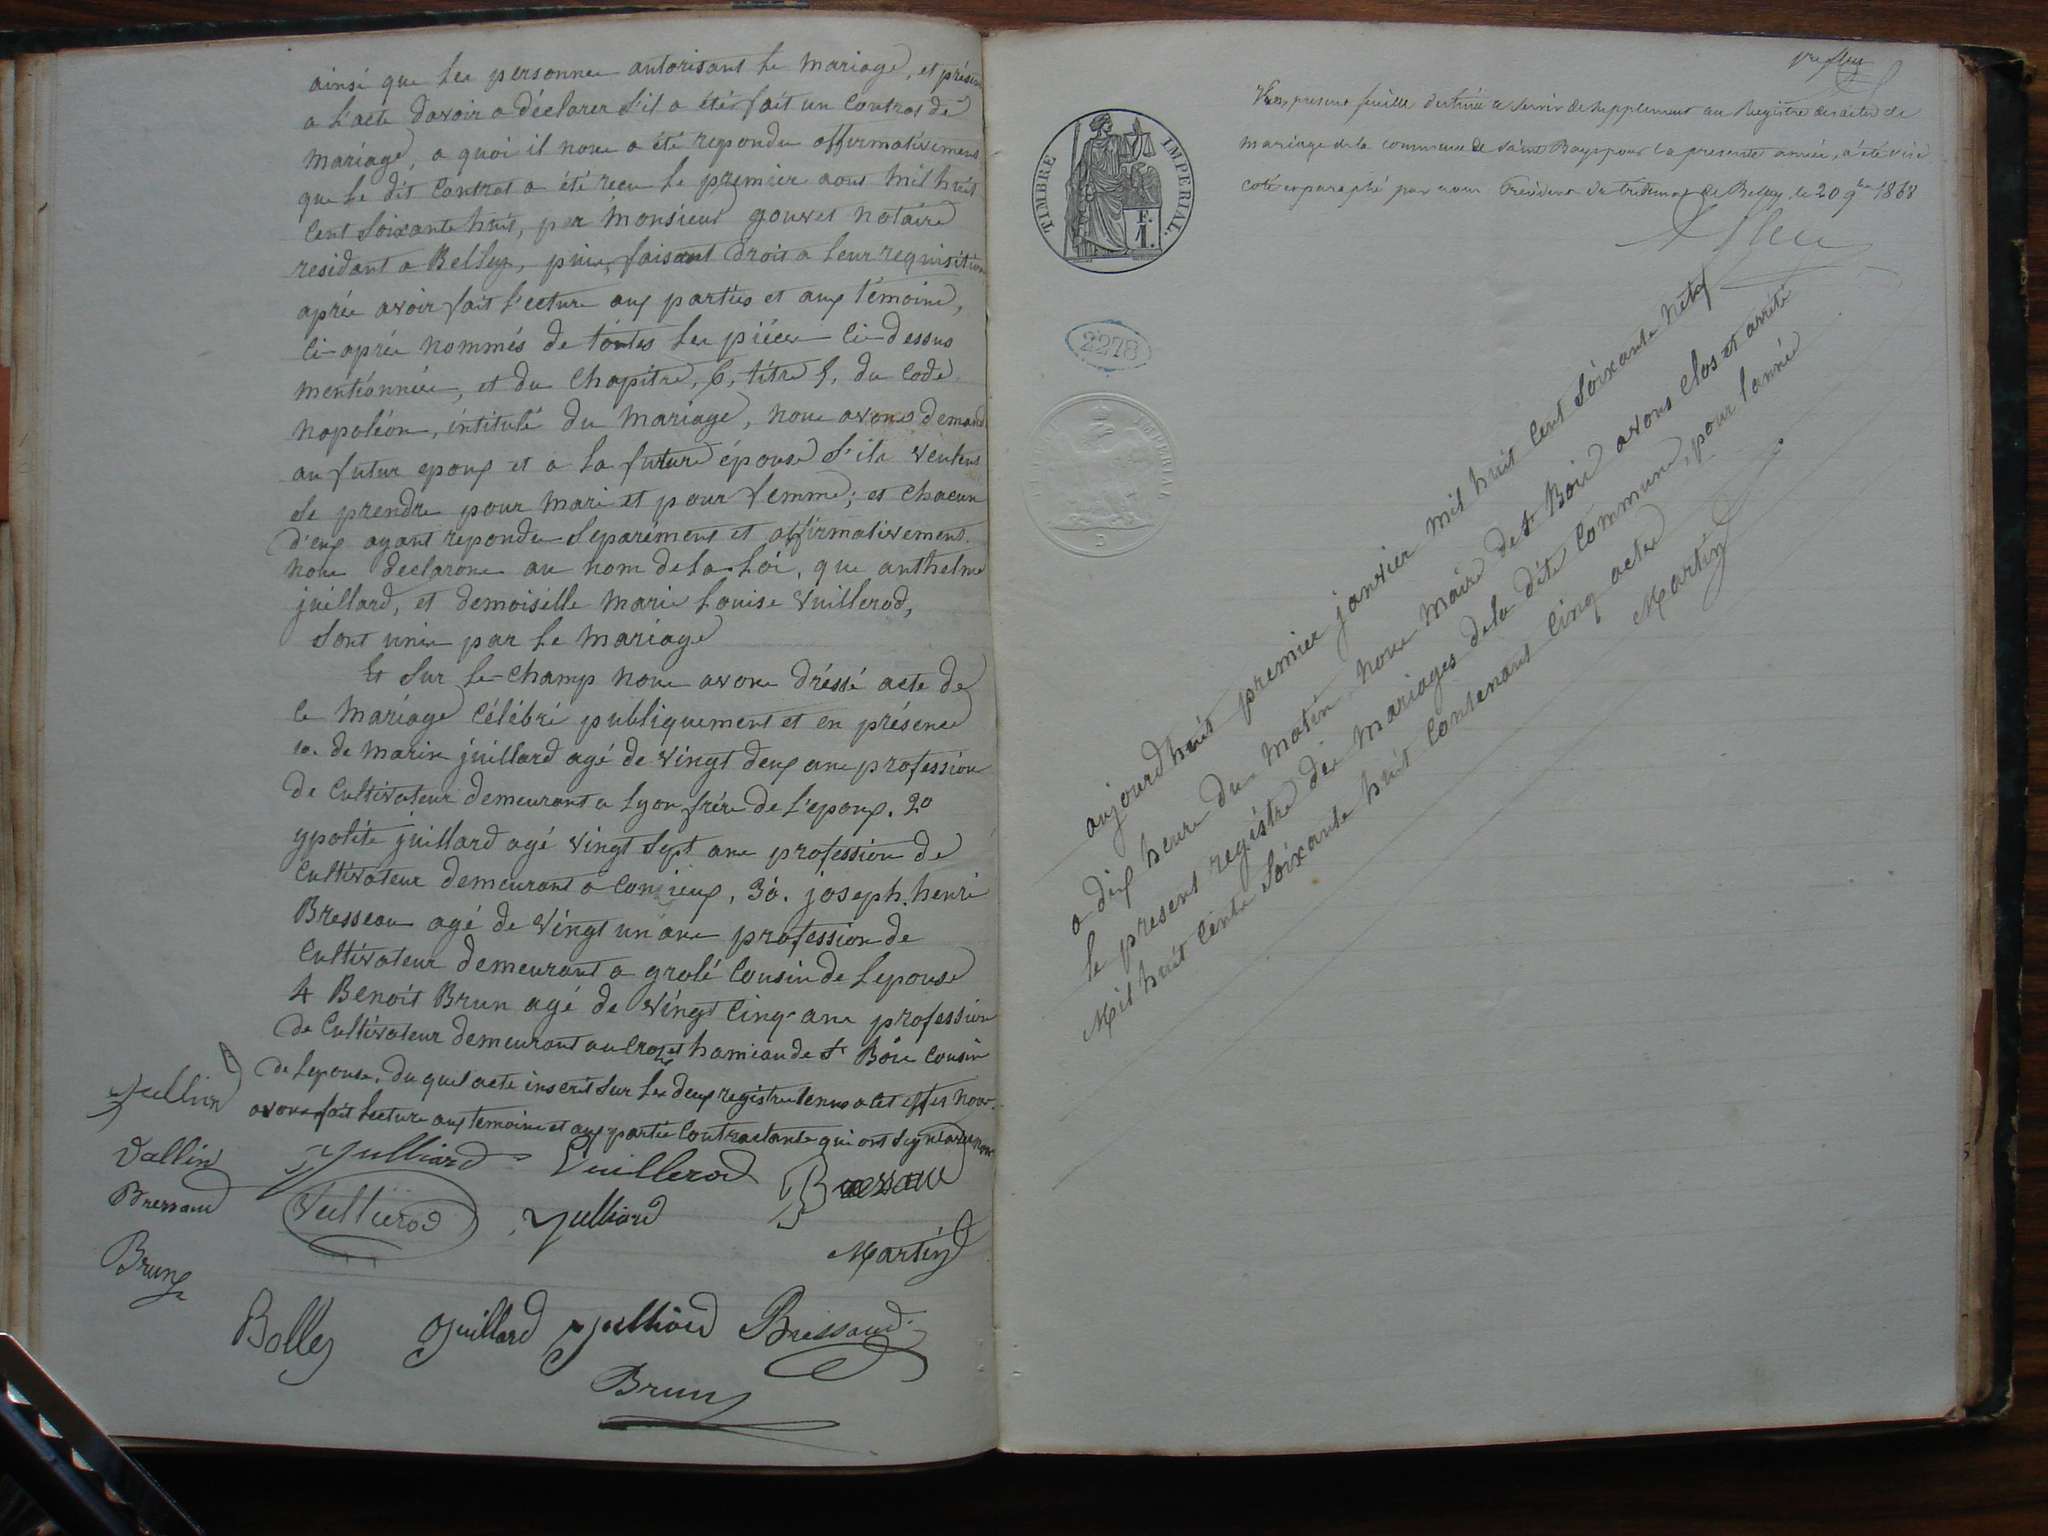 ainsi que les personnes autorisant le mariage, et présents
a l'acte davoir a déclarer s'il a été fait un contrat de
mariage, a quoi il nous a été repondu affirmativement
que le dit contrat a été recu le premier aout mil huit
cent soixante huit, par monsieur gouvet notaire
residant a Belley, puis, faisant droit a leur requisition
après avoir fait lecture aux parties et aux témoins,
ci-après nommés de toutes les pièces ci-dessus
mentionnées, et du chapitre, 6, titre 5, du code
napoléon, intitulé du mariage, nous avons demandé
au futur epoux et a la future épouse s'ils veulent
se prendre pour mari et pour femme; et chacun
d'eux ayant repondu separément et affirmativement
nous declarons au nom de la loi, que anthelme
juillard, et demoiselle marie Louise Vuillerod,
sont unis par le mariage
Et sur le champ nous avons dréssé acte de
ce mariage célébré publiquement et en présence
1o. de marin juillard agé de vingt deux ans profession
de cultivateur demeurant a Lyon frère de l'epoux. 2o
ypolite juillard agé vingt sept ans profession de
cultivateur demeurant a conzieux, 3o. joseph. henri
Bresseau agé de vingt un ans profession de
cultivateur demeurant a grolé cousin de lepouse
4 Benoit Brun agé de vingt cinq ans profession
de cultivateur demeurant au crozet hamiau de St Bois cousin
de lepouse. du quel acte inscrit sur les deux registres tenus a cet effet nous
avons fait lecture aux temoins et aux parties contractante qui ont signé avec nous
Jullird
Vallin
Julliard
Vuillerod
Bressau
Bressaud
Vullierod
Julliard
Martin
Brun
Bolley
Juillard
Julliard
Bressaud
Brun
1re feuille
TIMBRE IMPERIAL.
F.
1.
2278
IMPERIAL
D
presente feuille destinée a servir de supplement au Registre des actes de
mariage de la commune de Saint Boys pour la presente année, a été visé
coté et paraphé par nous Président du tribunal de Belley, le 20 9bre 1868
aujourdhuit premier janvier mil huit cent soixante neuf
a dix heure du matin nous maire de St Bois avons clos et arrêté
le present registre des mariages de la dite commune, pour lannée
Mil huit cents soixante huit contenant cinq actes
Martin